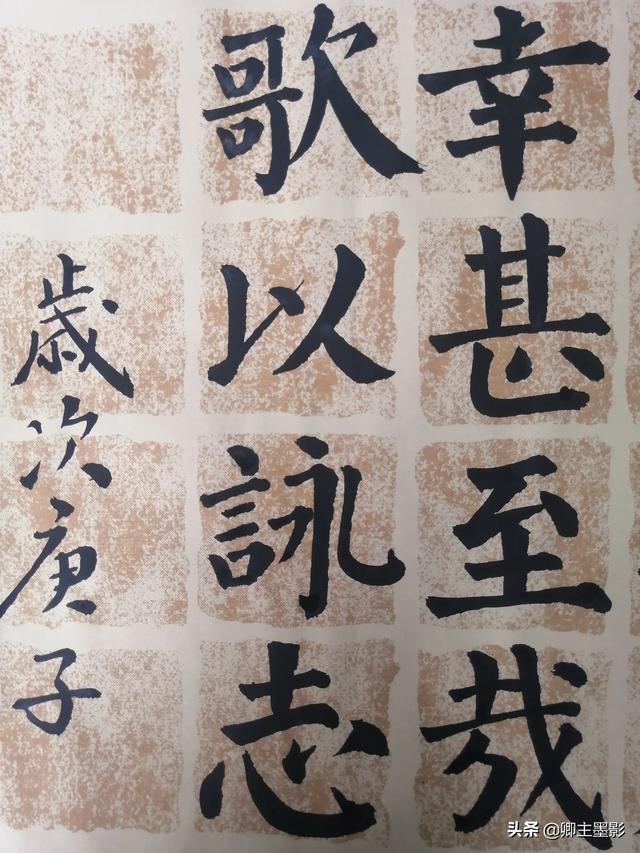 幸甚至哉
歌以詠志
歲次庚子
头条 @卿主墨影